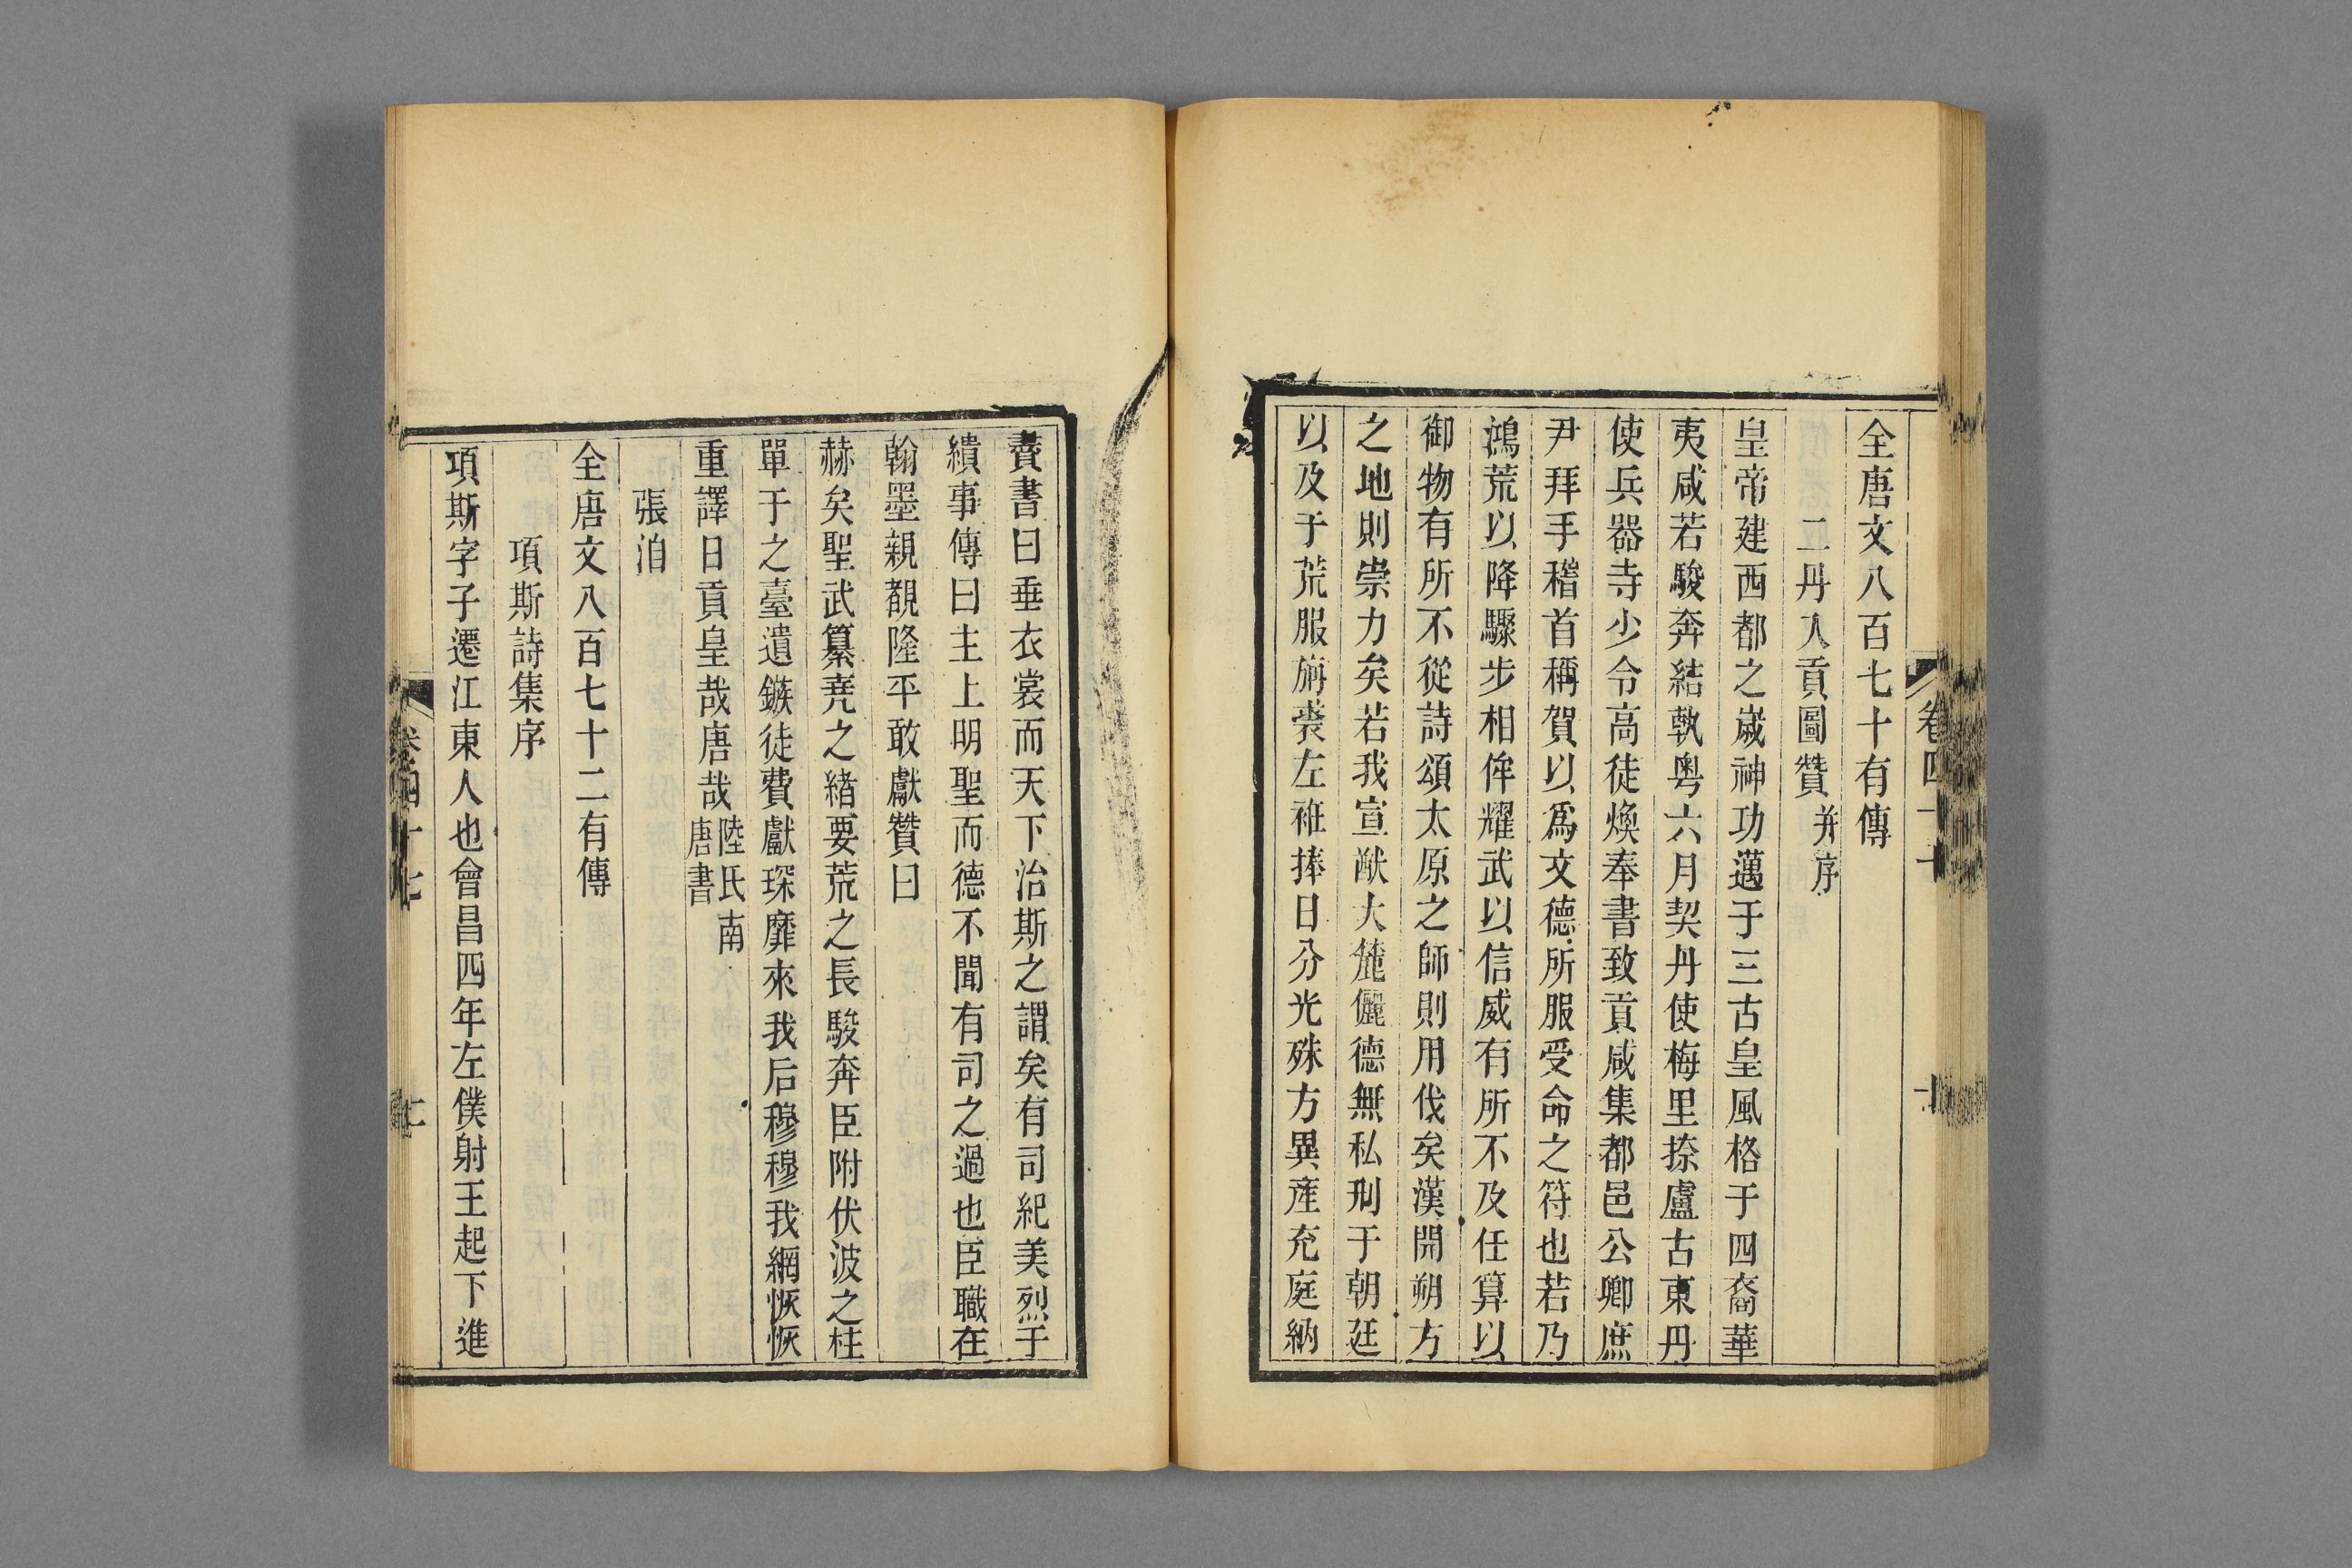 全唐文八百七十有傳
二丹入貢圖贊并序
皇帝建西都之歲神功邁于三古皇風格于四裔華
夷咸若駿奔結軌粵六月契丹使梅里捺盧古東丹
使兵器寺少令高徒煥奉書致貢咸集都邑公卿庶
尹拜手稽首稱賀以爲文德所服受命之符也若乃
鴻荒以降驟步相侔耀武以信威有所不及任算以
御物有所不從詩頌太原之師則用伐矣漢開朔方
之地則崇力矣若我宣猷大麓儷德無私刑于朝廷
以及于荒服旃裘左衽捧日分光殊方異產充庭納
賮書曰垂衣裳而天下治斯之謂矣有司紀美烈于
繢事傳曰主上明聖而德不聞有司之過也臣職在
翰墨親覩隆平敢獻贊曰
赫矣聖武纂堯之緒要荒之長駿奔臣附伏波之柱
單于之臺遺鏃徒費獻琛靡來我后穆穆我網恢恢
重譯日貢皇哉唐哉陸氏南唐書
張洎
全唐文八百七十二有傳
項斯詩集序
項斯字子遷江東人也會昌四年左僕射王起下進
卷四十七